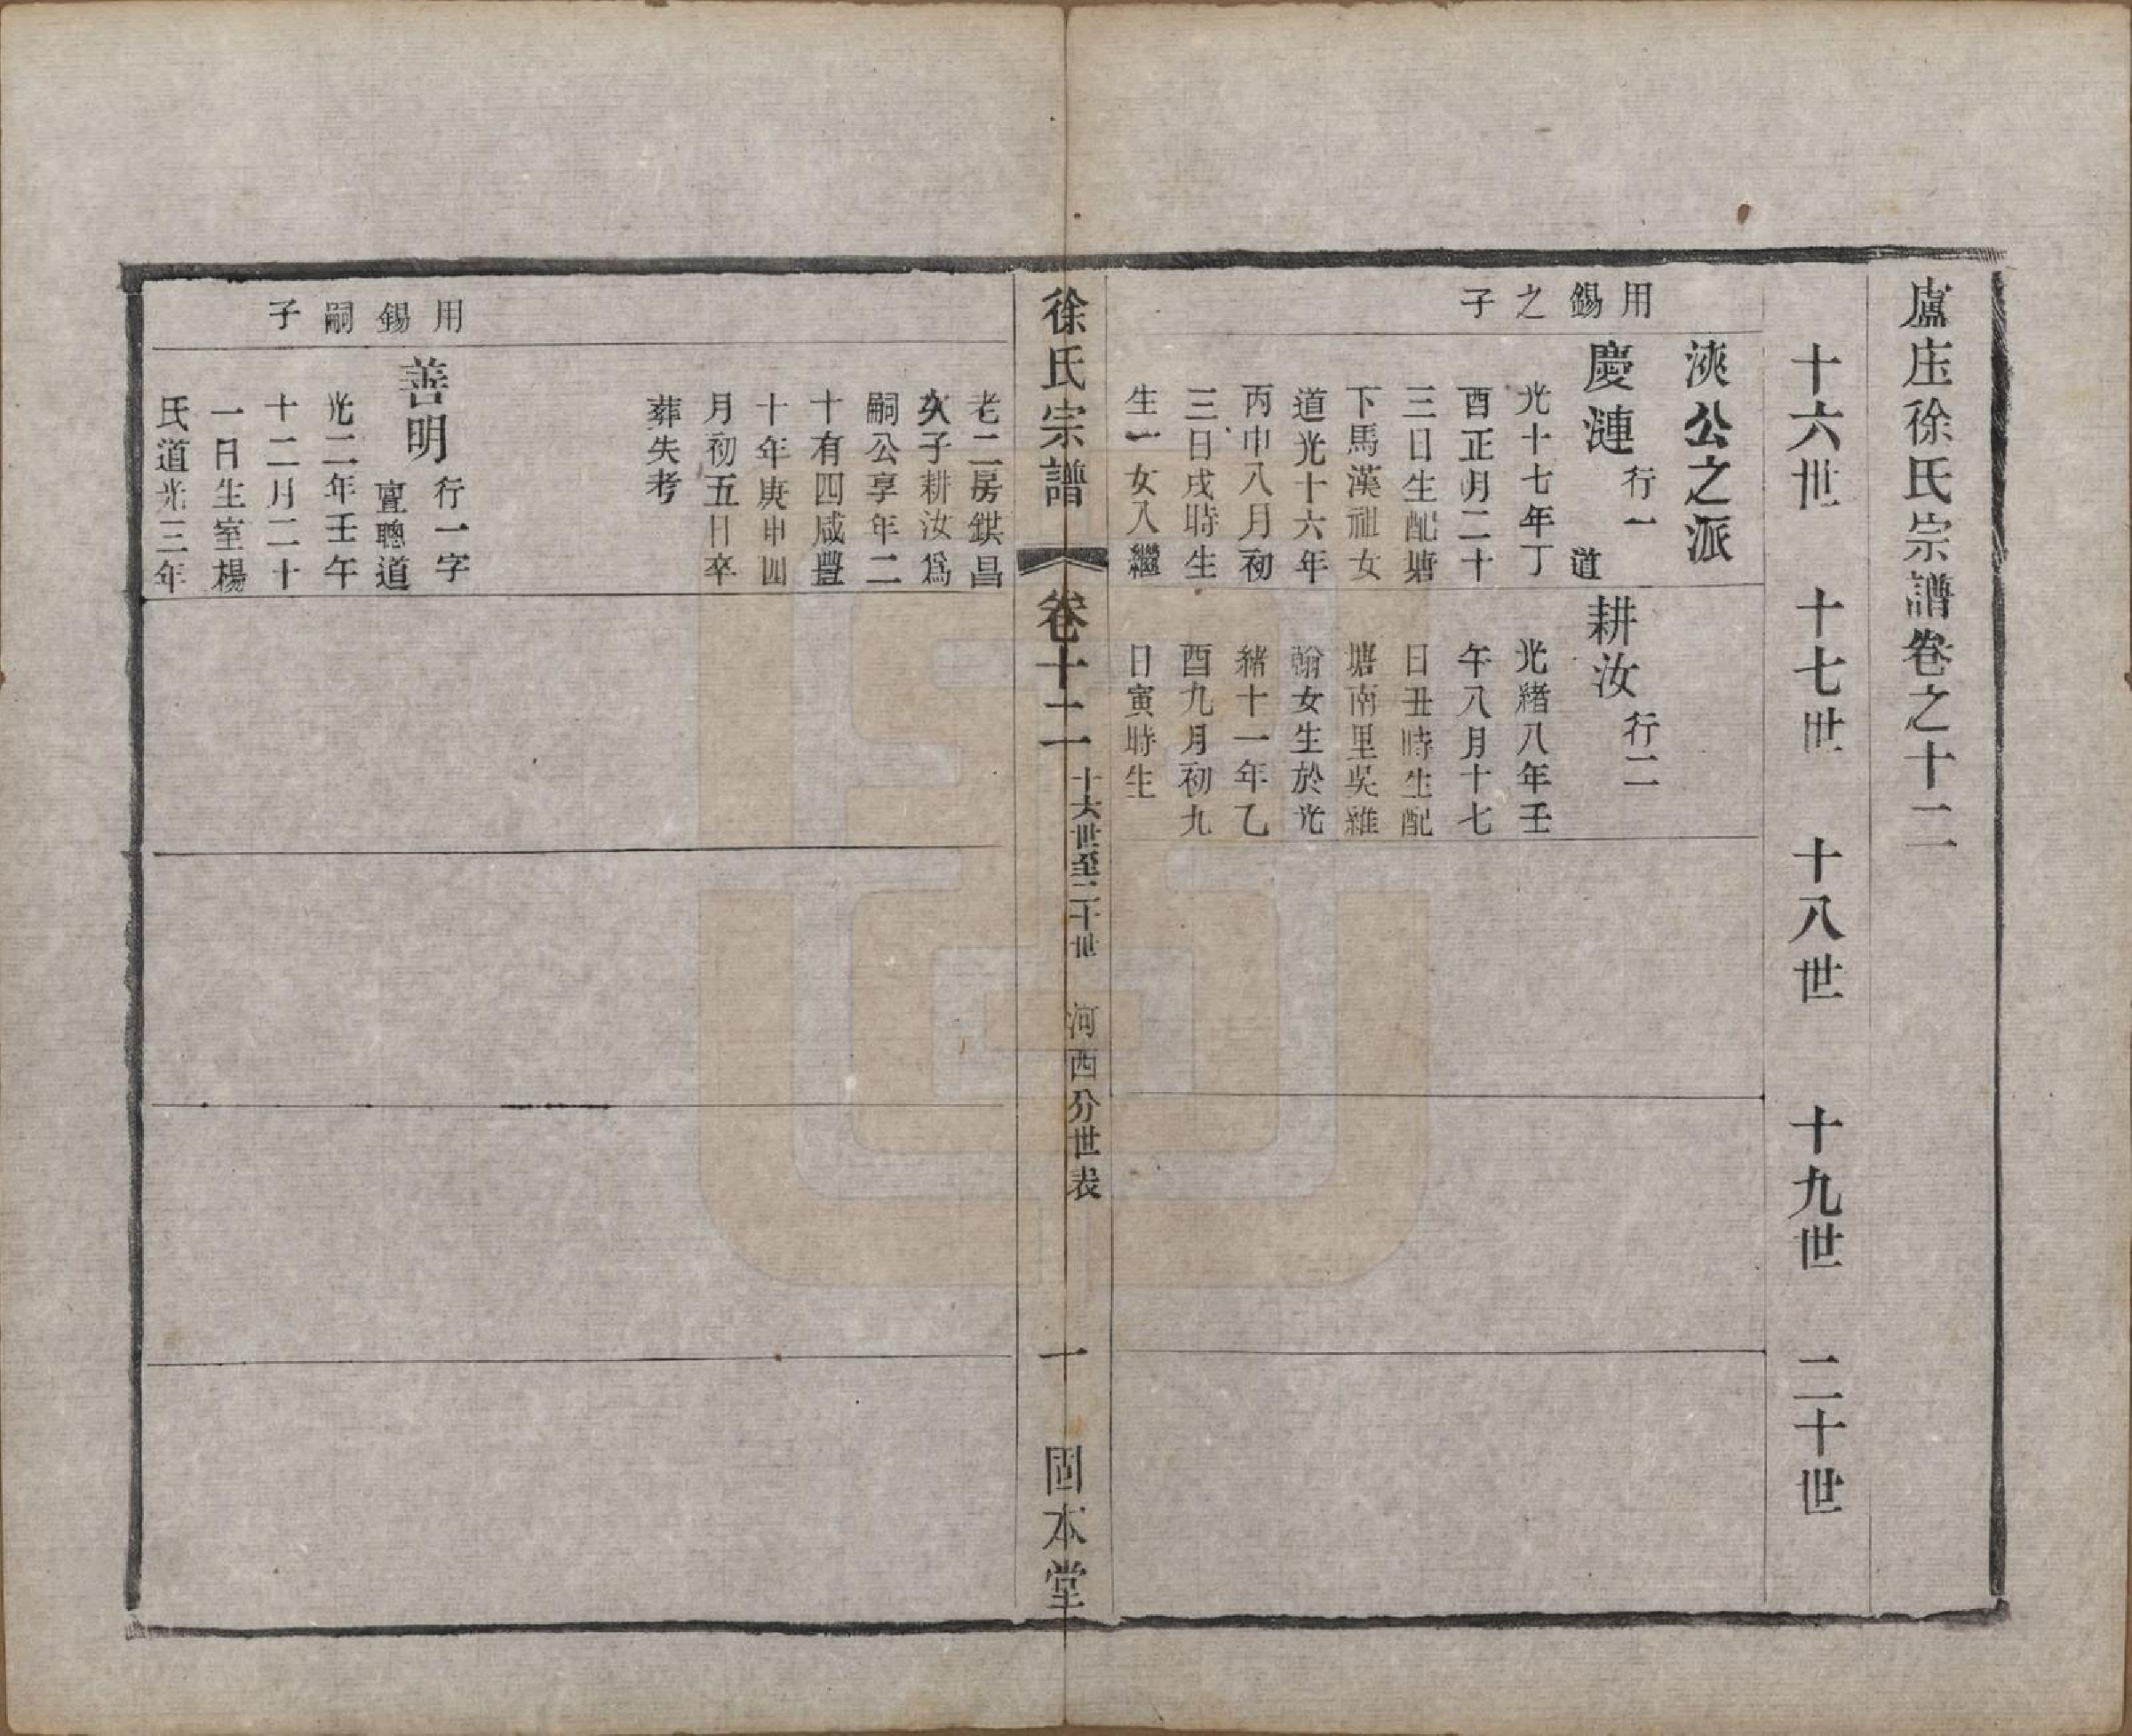 廬庄徐氏宗譜卷之十二
十六世
十七世
十八世
十九世
二十世
浹公之派
用錫之子
慶漣
行一
道
光十七年丁
酉正月二十
三日生配塘
下馬漢祖女
道光十六年
丙申八月初
三日戌時生
生一女入繼
耕汝
行二
光緒八年壬
午八月十七
日丑時生配
塘南里吳維
翰女生於光
緒十一年乙
酉九月初九
日寅時生
徐氏宗譜
卷十二
十六世至二十世
河西分世表
一
固本堂
老二房錤昌
次子耕汝爲
嗣公享年二
十有四咸豐
十年庚申四
月初五日卒
葬失考
用錫嗣子
善明
行一字
亶聰道
光二年壬午
十二月二十
一日生室楊
氏道光三年